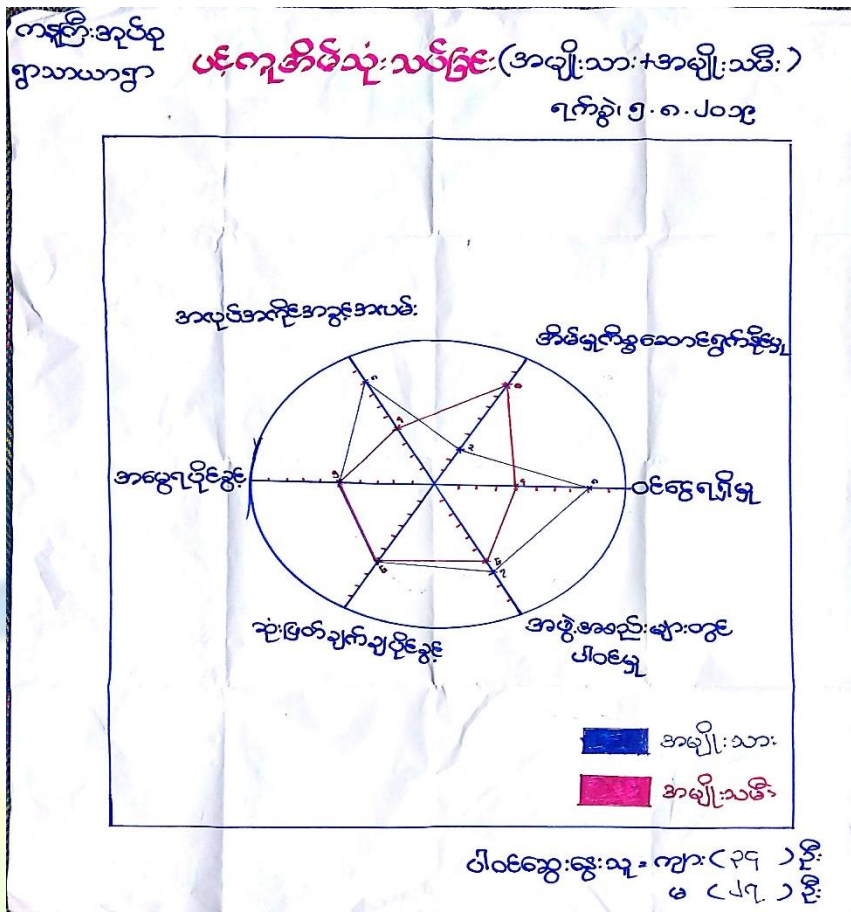 ကနူကြီးအုပ်စု
ရွာသာယာရွာ
ပင့်ကူအိမ်သုံးသပ်ခြင်း(အမျိုးသား+အမျိုးသမီး)
ရက်စွဲ၊ ၅.၈.၂၀၁၉
အလုပ်အကိုင်အခွင့်အလမ်း
အိမ်မှုကိစ္စဆောင်ရွက်နိုင်မှု
အမွေရပိုင်ခွင့်
ဝင်ငွေရရှိမှု
ဆုံးဖြတ်ချက်ချပိုင်ခွင့်
အဖွဲ့အစည်းများတွင်
ပါဝင်မှု
အမျိုးသား
အမျိုးသမီး
ပါဝင်ဆွေးနွေးသူ = ကျား (၃၄) ဦး
မ (၂၇) ဦး